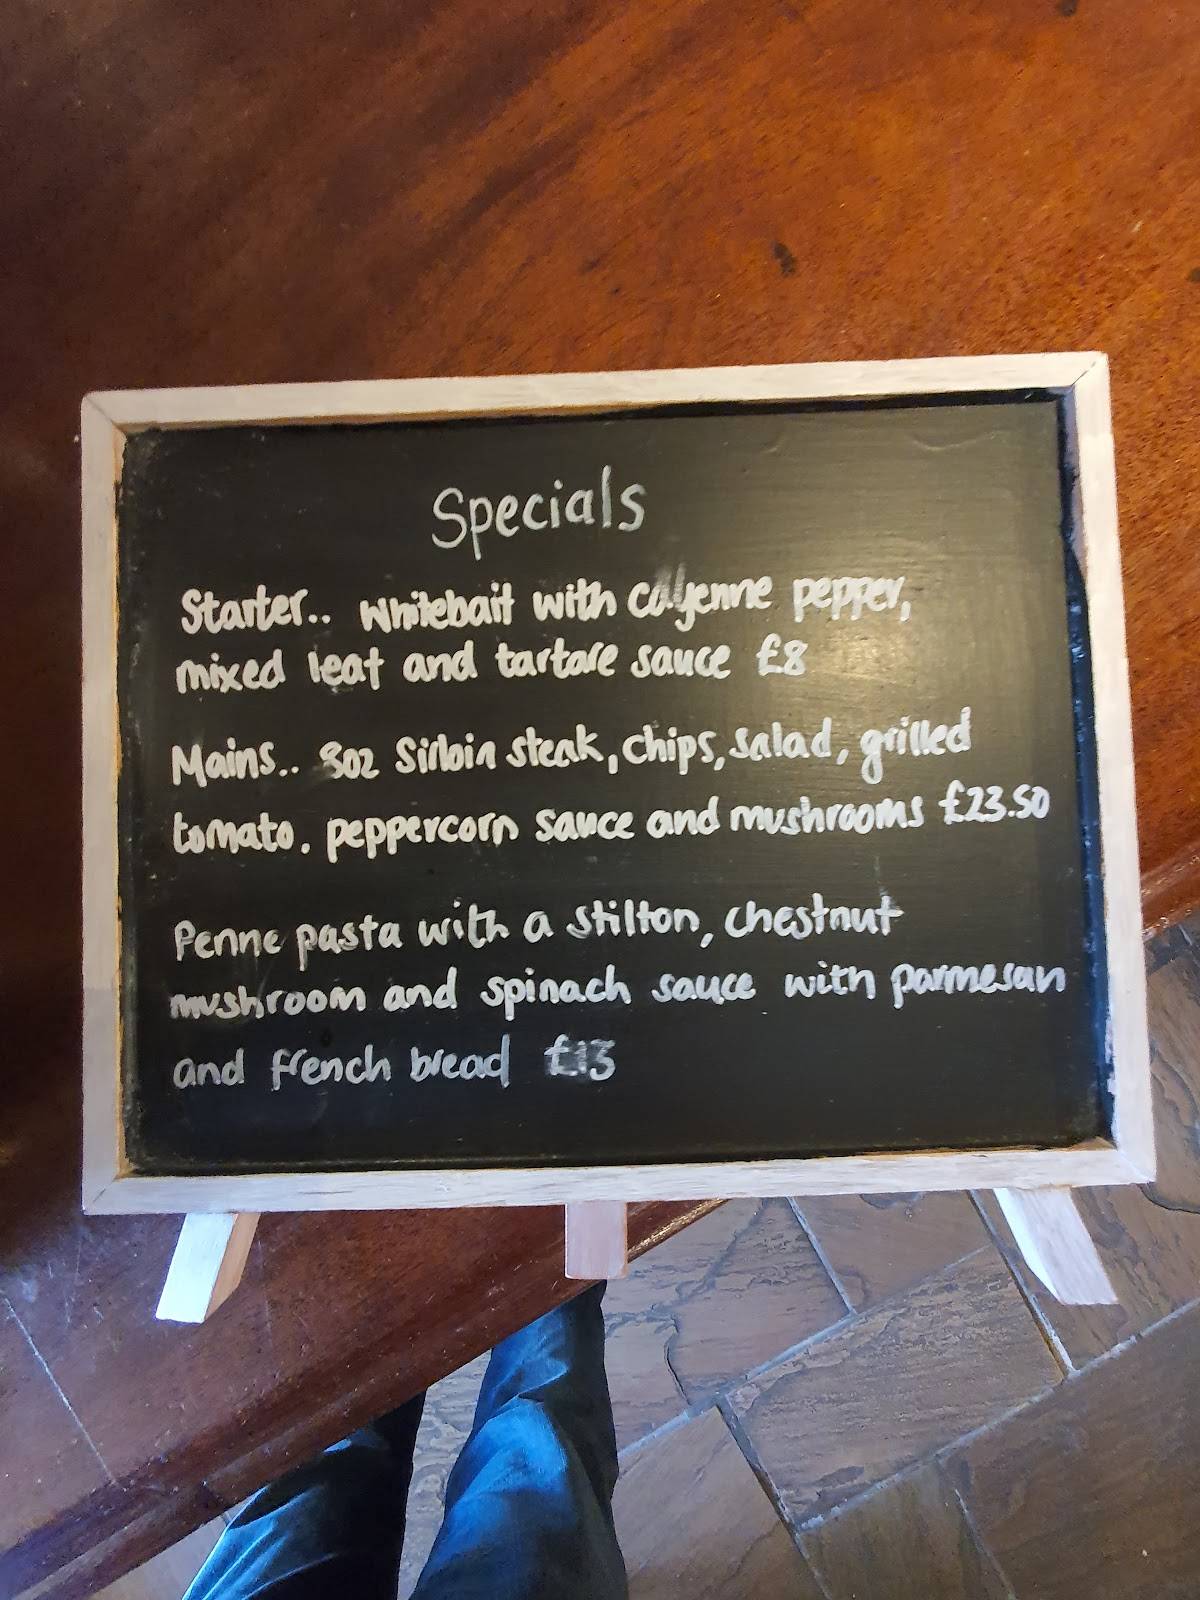 Specials
Starter.. Whitebait with cayenne pepper,
mixed leaf and tartare sauce £8
Mains.. 8oz Sirloin steak, chips, salad, grilled
tomato, peppercorn sauce and mushrooms £23.50
Penne pasta with a stilton, chestnut
mushroom and spinach sauce with parmesan
and french bread £13